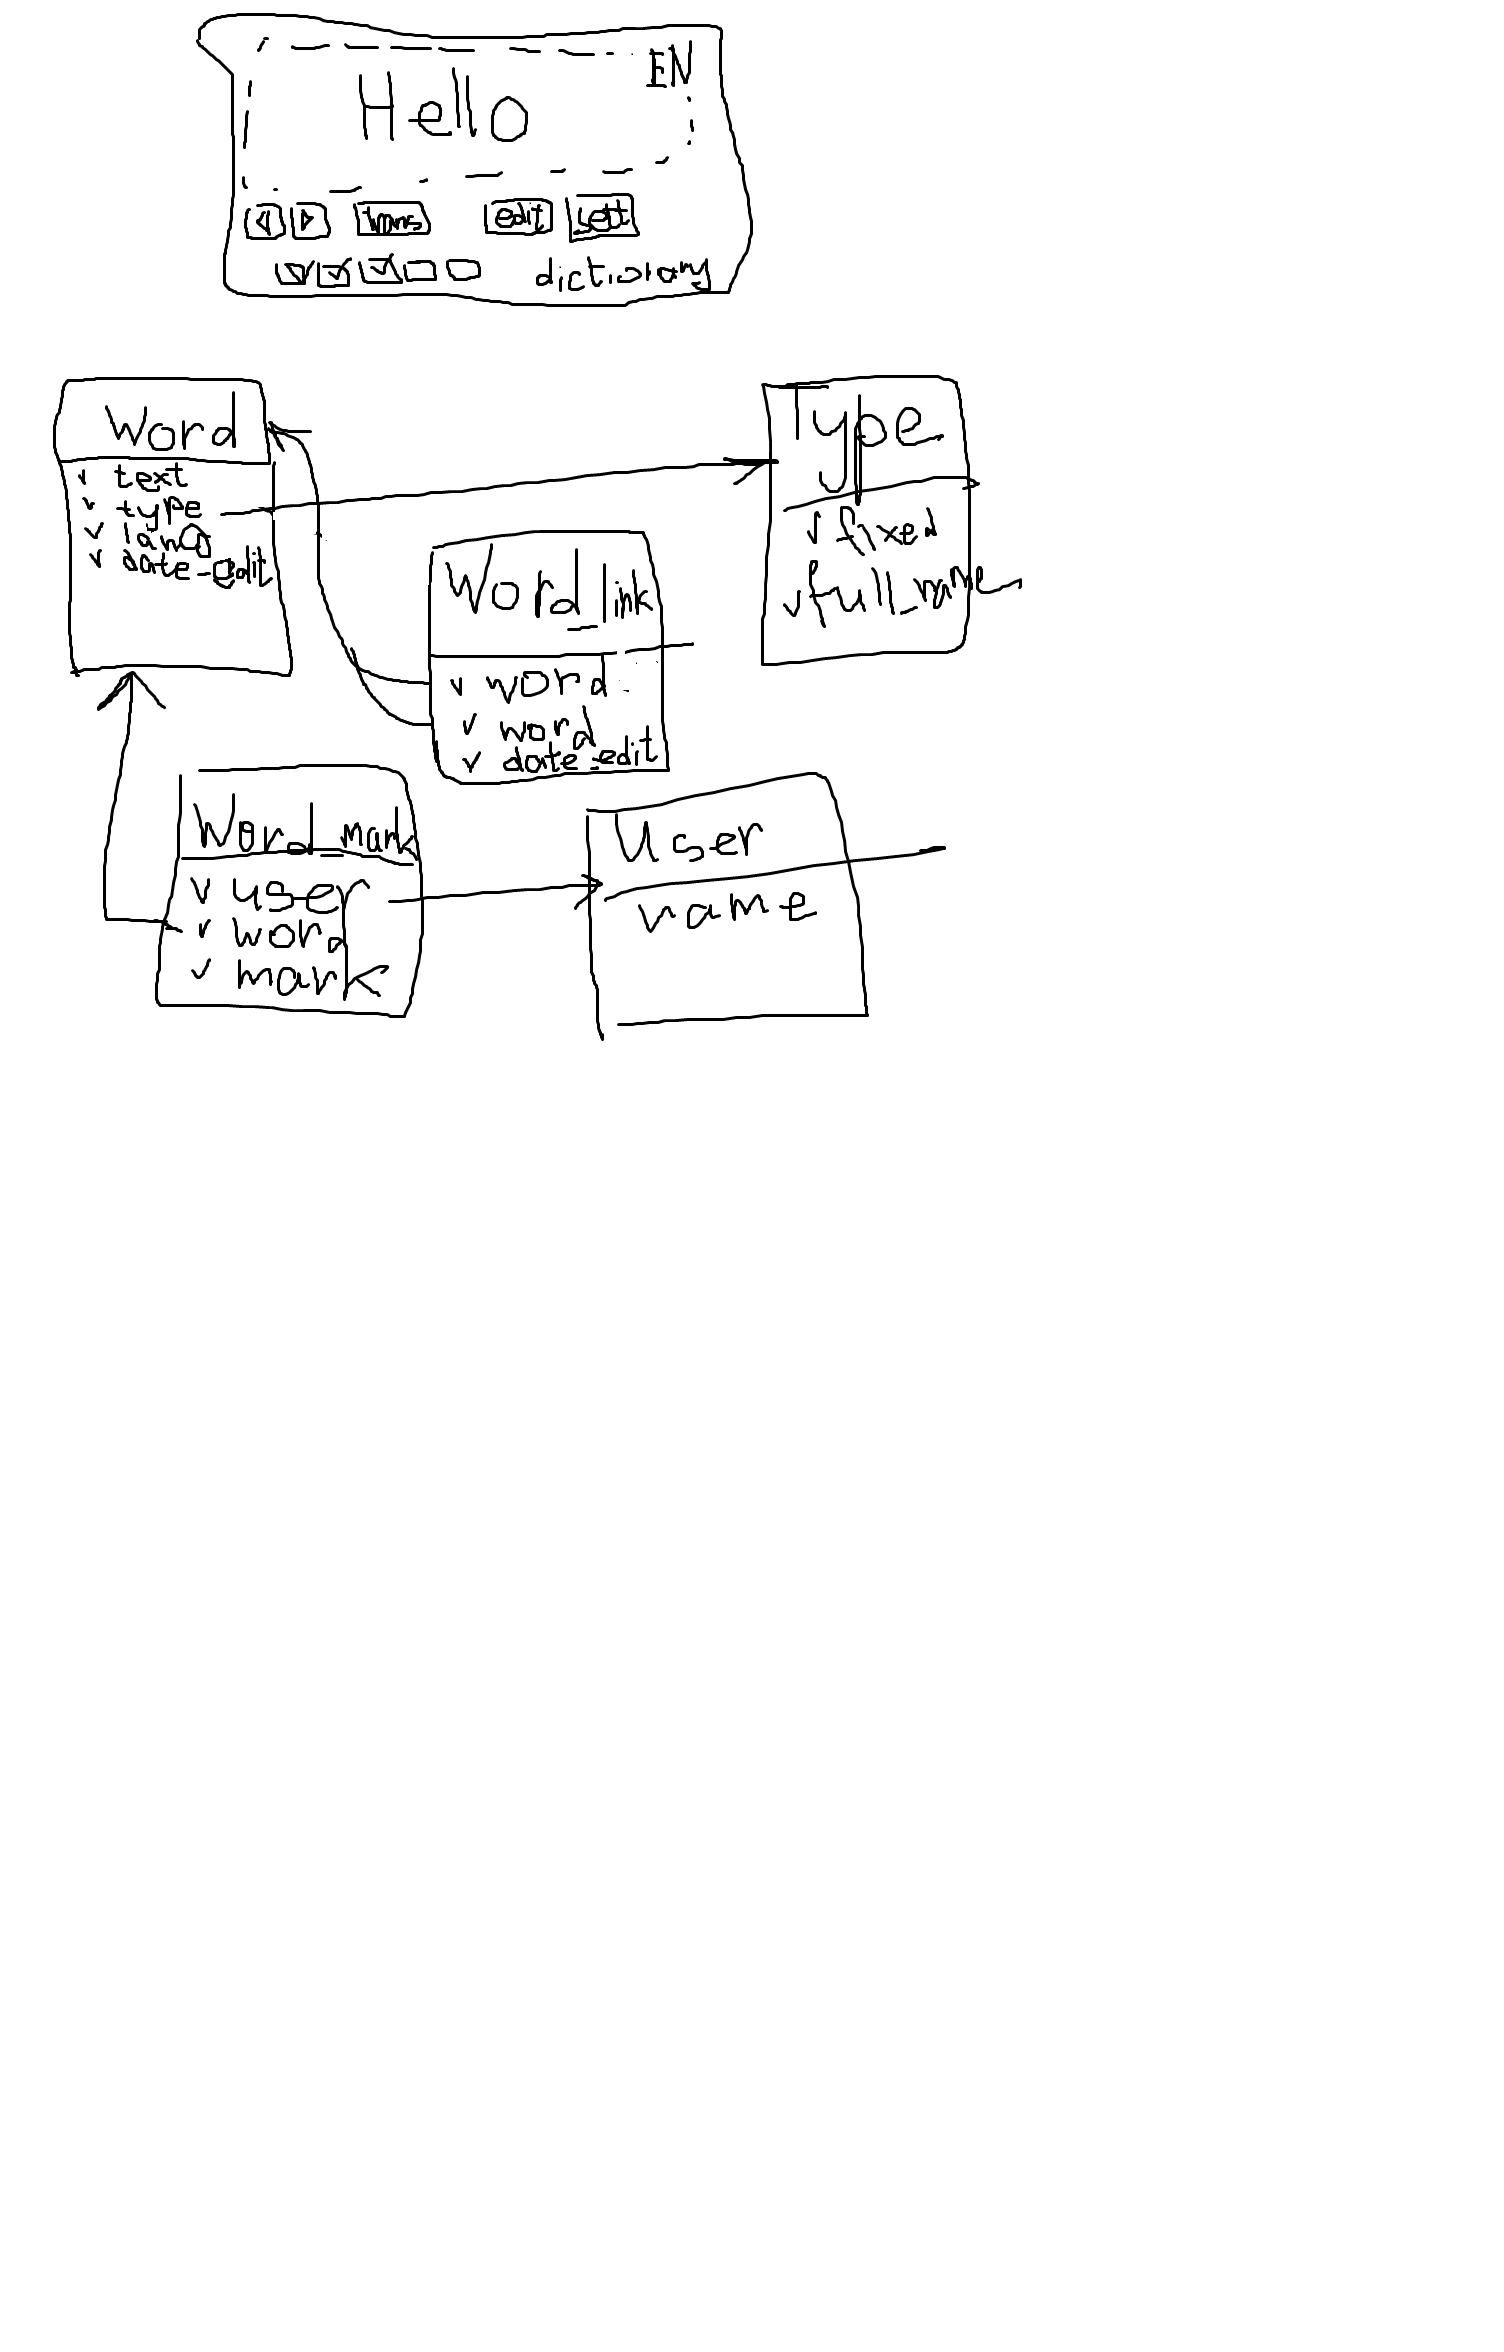 EN
Hello
trans edit sett
dictionary
Word
text
type
lang
date_edit
Type
fixed
full_name
Word_link
word
word
date_edit
Word_mark
user
word
mark
User
name